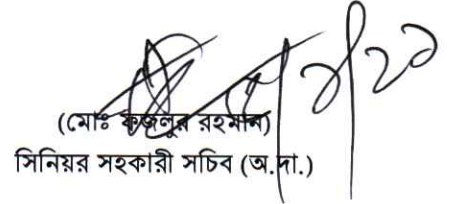 (মোঃ ফজলুর রহমান)
সিনিয়র সহকারী সচিব (অ.দা.)